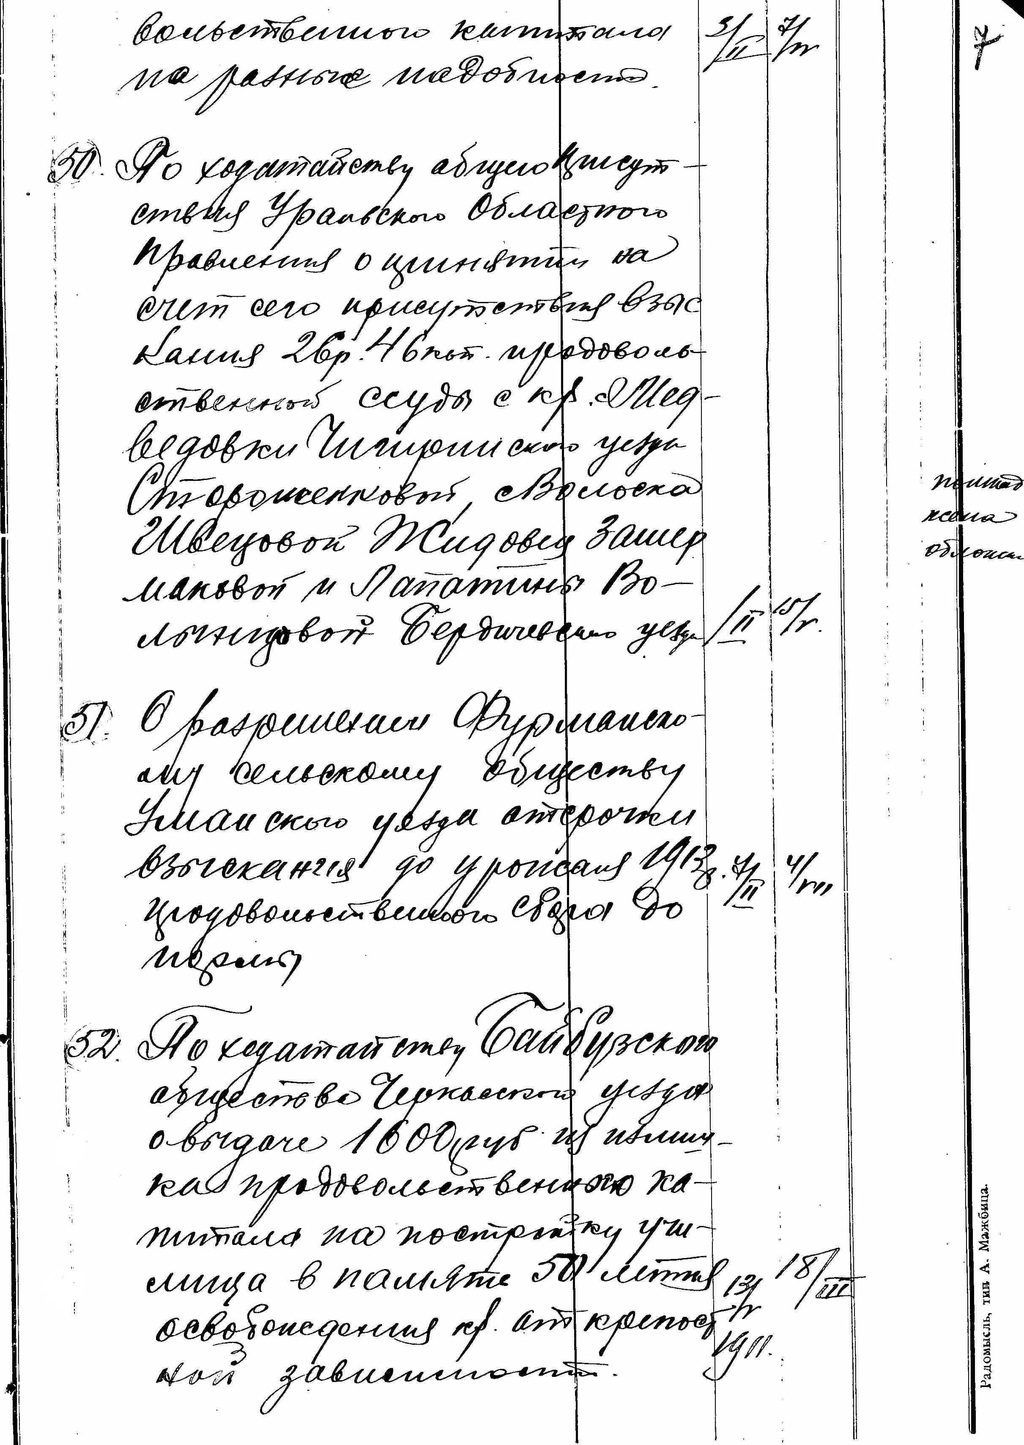 7
вольственного капитала 3/II 7/IV
на разные надобности.
50. По ходатайству общего Присут-
ствия Уральского Областного
Правления о принятии на
счет сего присутствия взыс
кания 26р. 46 коп. продоволь-
ственной ссуды с кр. Мед-
ведовки Чигиринского уезда
Стороженковой, с Волоска
Швецовой Жидовец
маковой и Лапатины Во-
лынцовой Бердичевского уезда 1/II 15/V.
51. О разрешении Фурманско-
му сельскому обществу
Уманского уезда отсрочки
взыскания до урожая 1912г. 7/II 4/VII
продовольственного сбора до
нормы
52. По ходатайству Байбузского
общества Черкасского уезда
о выдаче 1600 руб из излиш-
ка продовольственного ка-
питала на постройку учи-
лища в памяте 50 летия 13/V 18/III
освобождения кр. от крепост 1911.
ной зависимости.
жена
Радомысль, тип А. Мажбица.